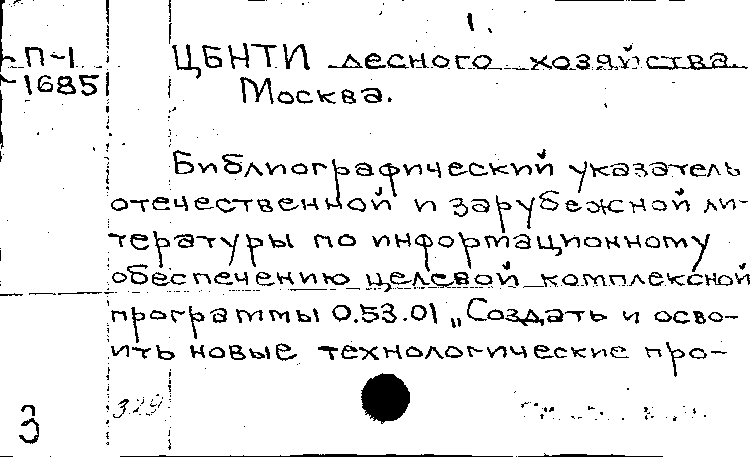 1.
П-1 ЦБНТИ лесного хозяйства.
1685 Москва.
Библиографический указатель
отечественной и зарубежной ли-
тературы по информационному
обеспечению целевой комплексной
программы 0.53.01 „Создать и осво-
ить новые технологические про-
329
3